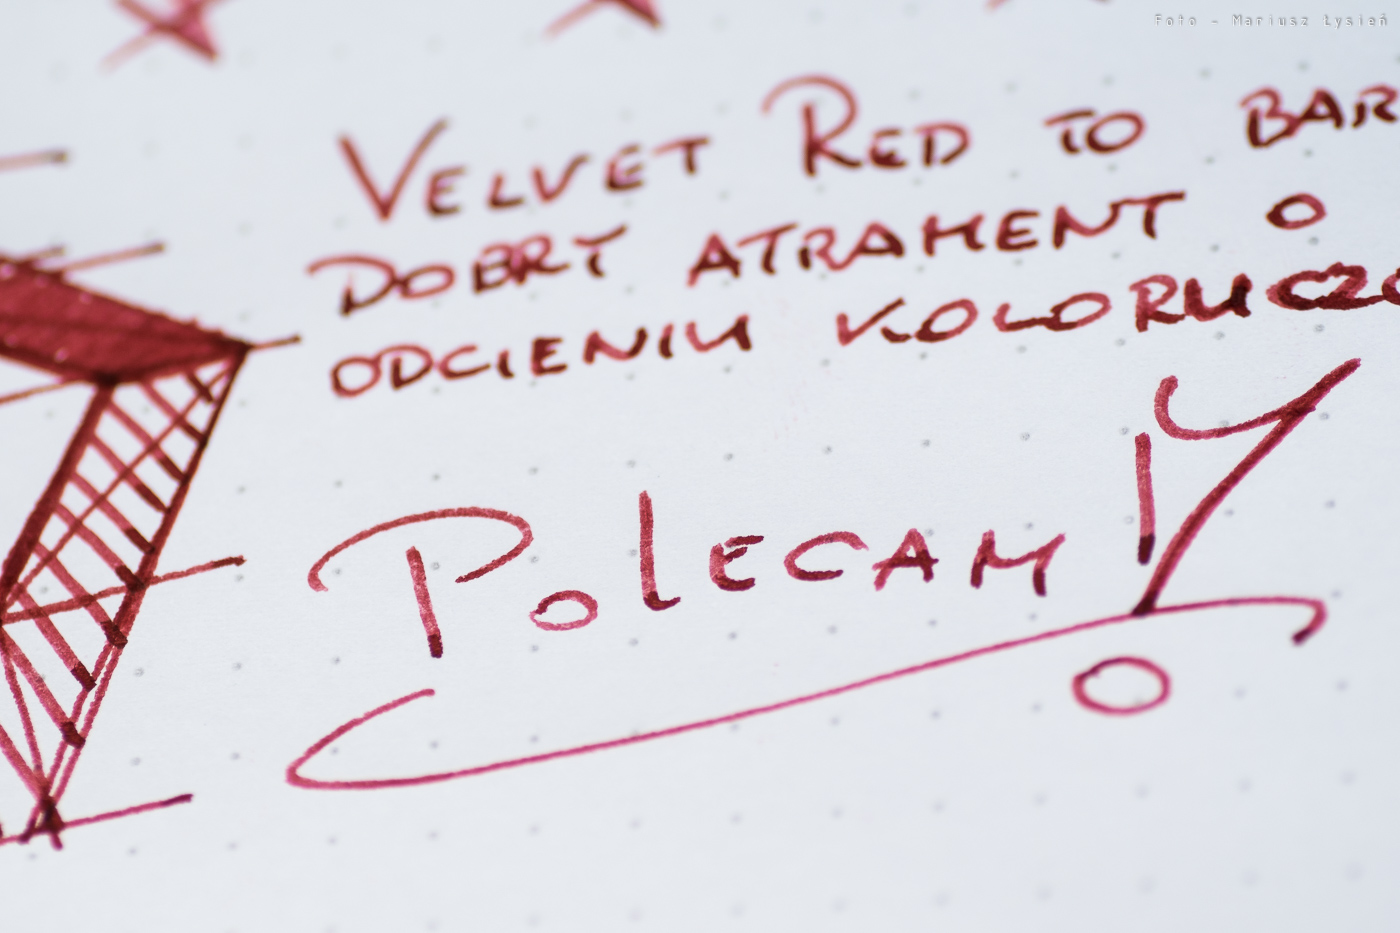 Foto - Mariusz Łysień
VELVET RED TO BAR
DOBRY ATRAMENT O
ODCIENIU KOLORUCZO
POLECAM!